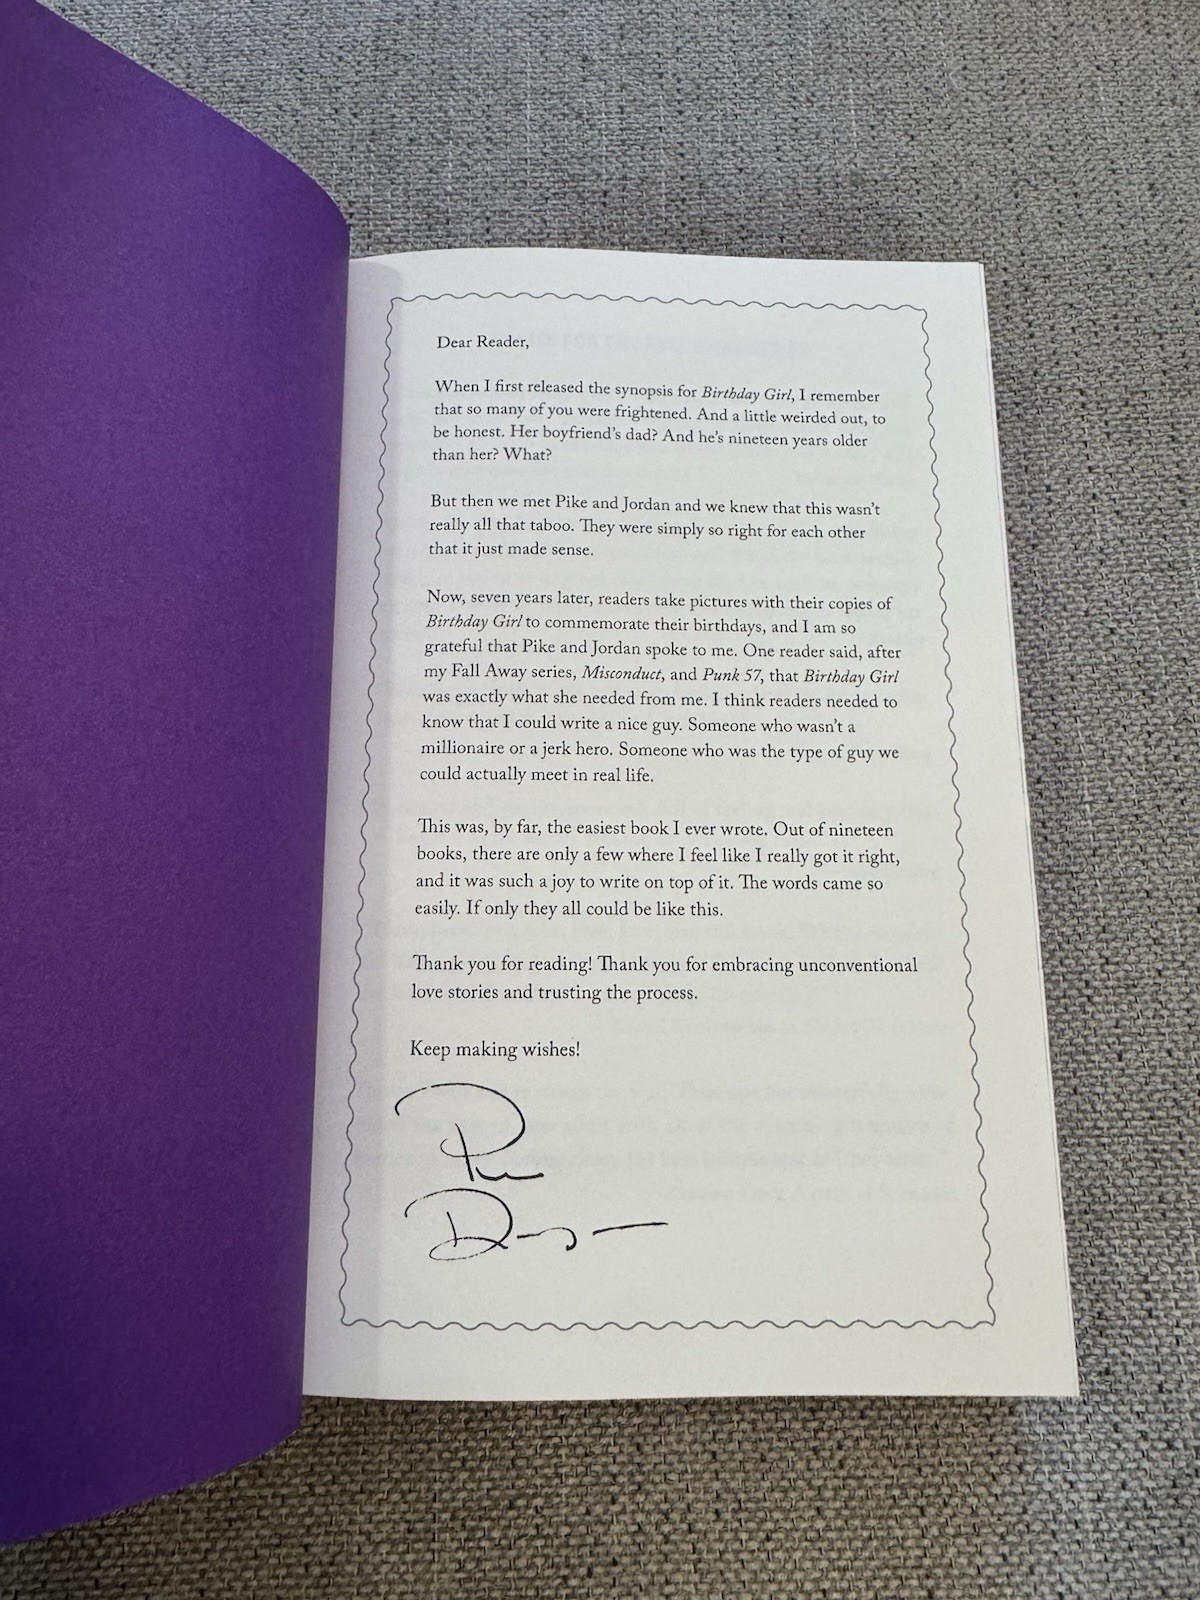 Dear Reader,
When I first released the synopsis for Birthday Girl, I remember
that so many of you were frightened. And a little weirded out, to
be honest. Her boyfriend's dad? And he's nineteen years older
than her? What?
But then we met Pike and Jordan and we knew that this wasn't
really all that taboo. They were simply so right for each other
that it just made sense.
Now, seven years later, readers take pictures with their copies of
Birthday Girl to commemorate their birthdays, and I am so
grateful that Pike and Jordan spoke to me. One reader said, after
my Fall Away series, Misconduct, and Punk 57, that Birthday Girl
was exactly what she needed from me. I think readers needed to
know that I could write a nice guy. Someone who wasn't a
millionaire or a jerk hero. Someone who was the type of guy we
could actually meet in real life.
This was, by far, the easiest book I ever wrote. Out of nineteen
books, there are only a few where I feel like I really got it right,
and it was such a joy to write on top of it. The words came so
easily. If only they all could be like this.
Thank you for reading! Thank you for embracing unconventional
love stories and trusting the process.
Keep making wishes!